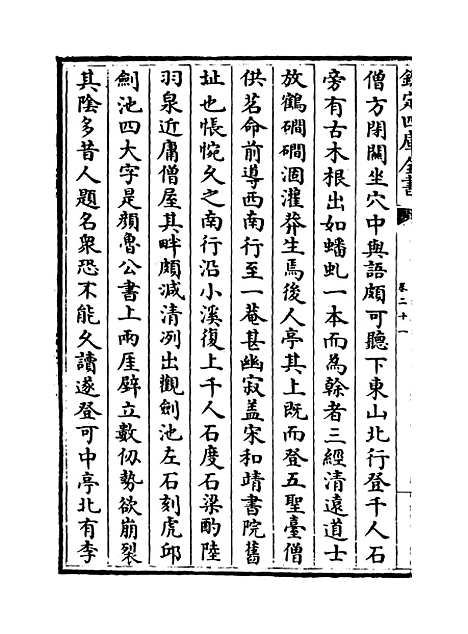 欽定四庫全書
卷二十一
僧方閉關坐穴中與語頗可聽下東山北行登千人石
旁有古木根出如蟠虬一本而為榦者三經清遠道士
放鶴磵磵涸灌莽生焉後人亭其上既而登五聖臺僧
供茗命前導西南行至一菴甚幽寂盖宋和靖書院舊
址也悵惋久之南行沿小溪復上千人石度石梁酌陸
羽泉近庸僧屋其畔頗減清冽出觀劍池左石刻虎邱
劍池四大字是顔魯公書上兩厓壁立數仭勢欲崩裂
其陰多昔人題名衆恐不能久讀遂登可中亭北有李